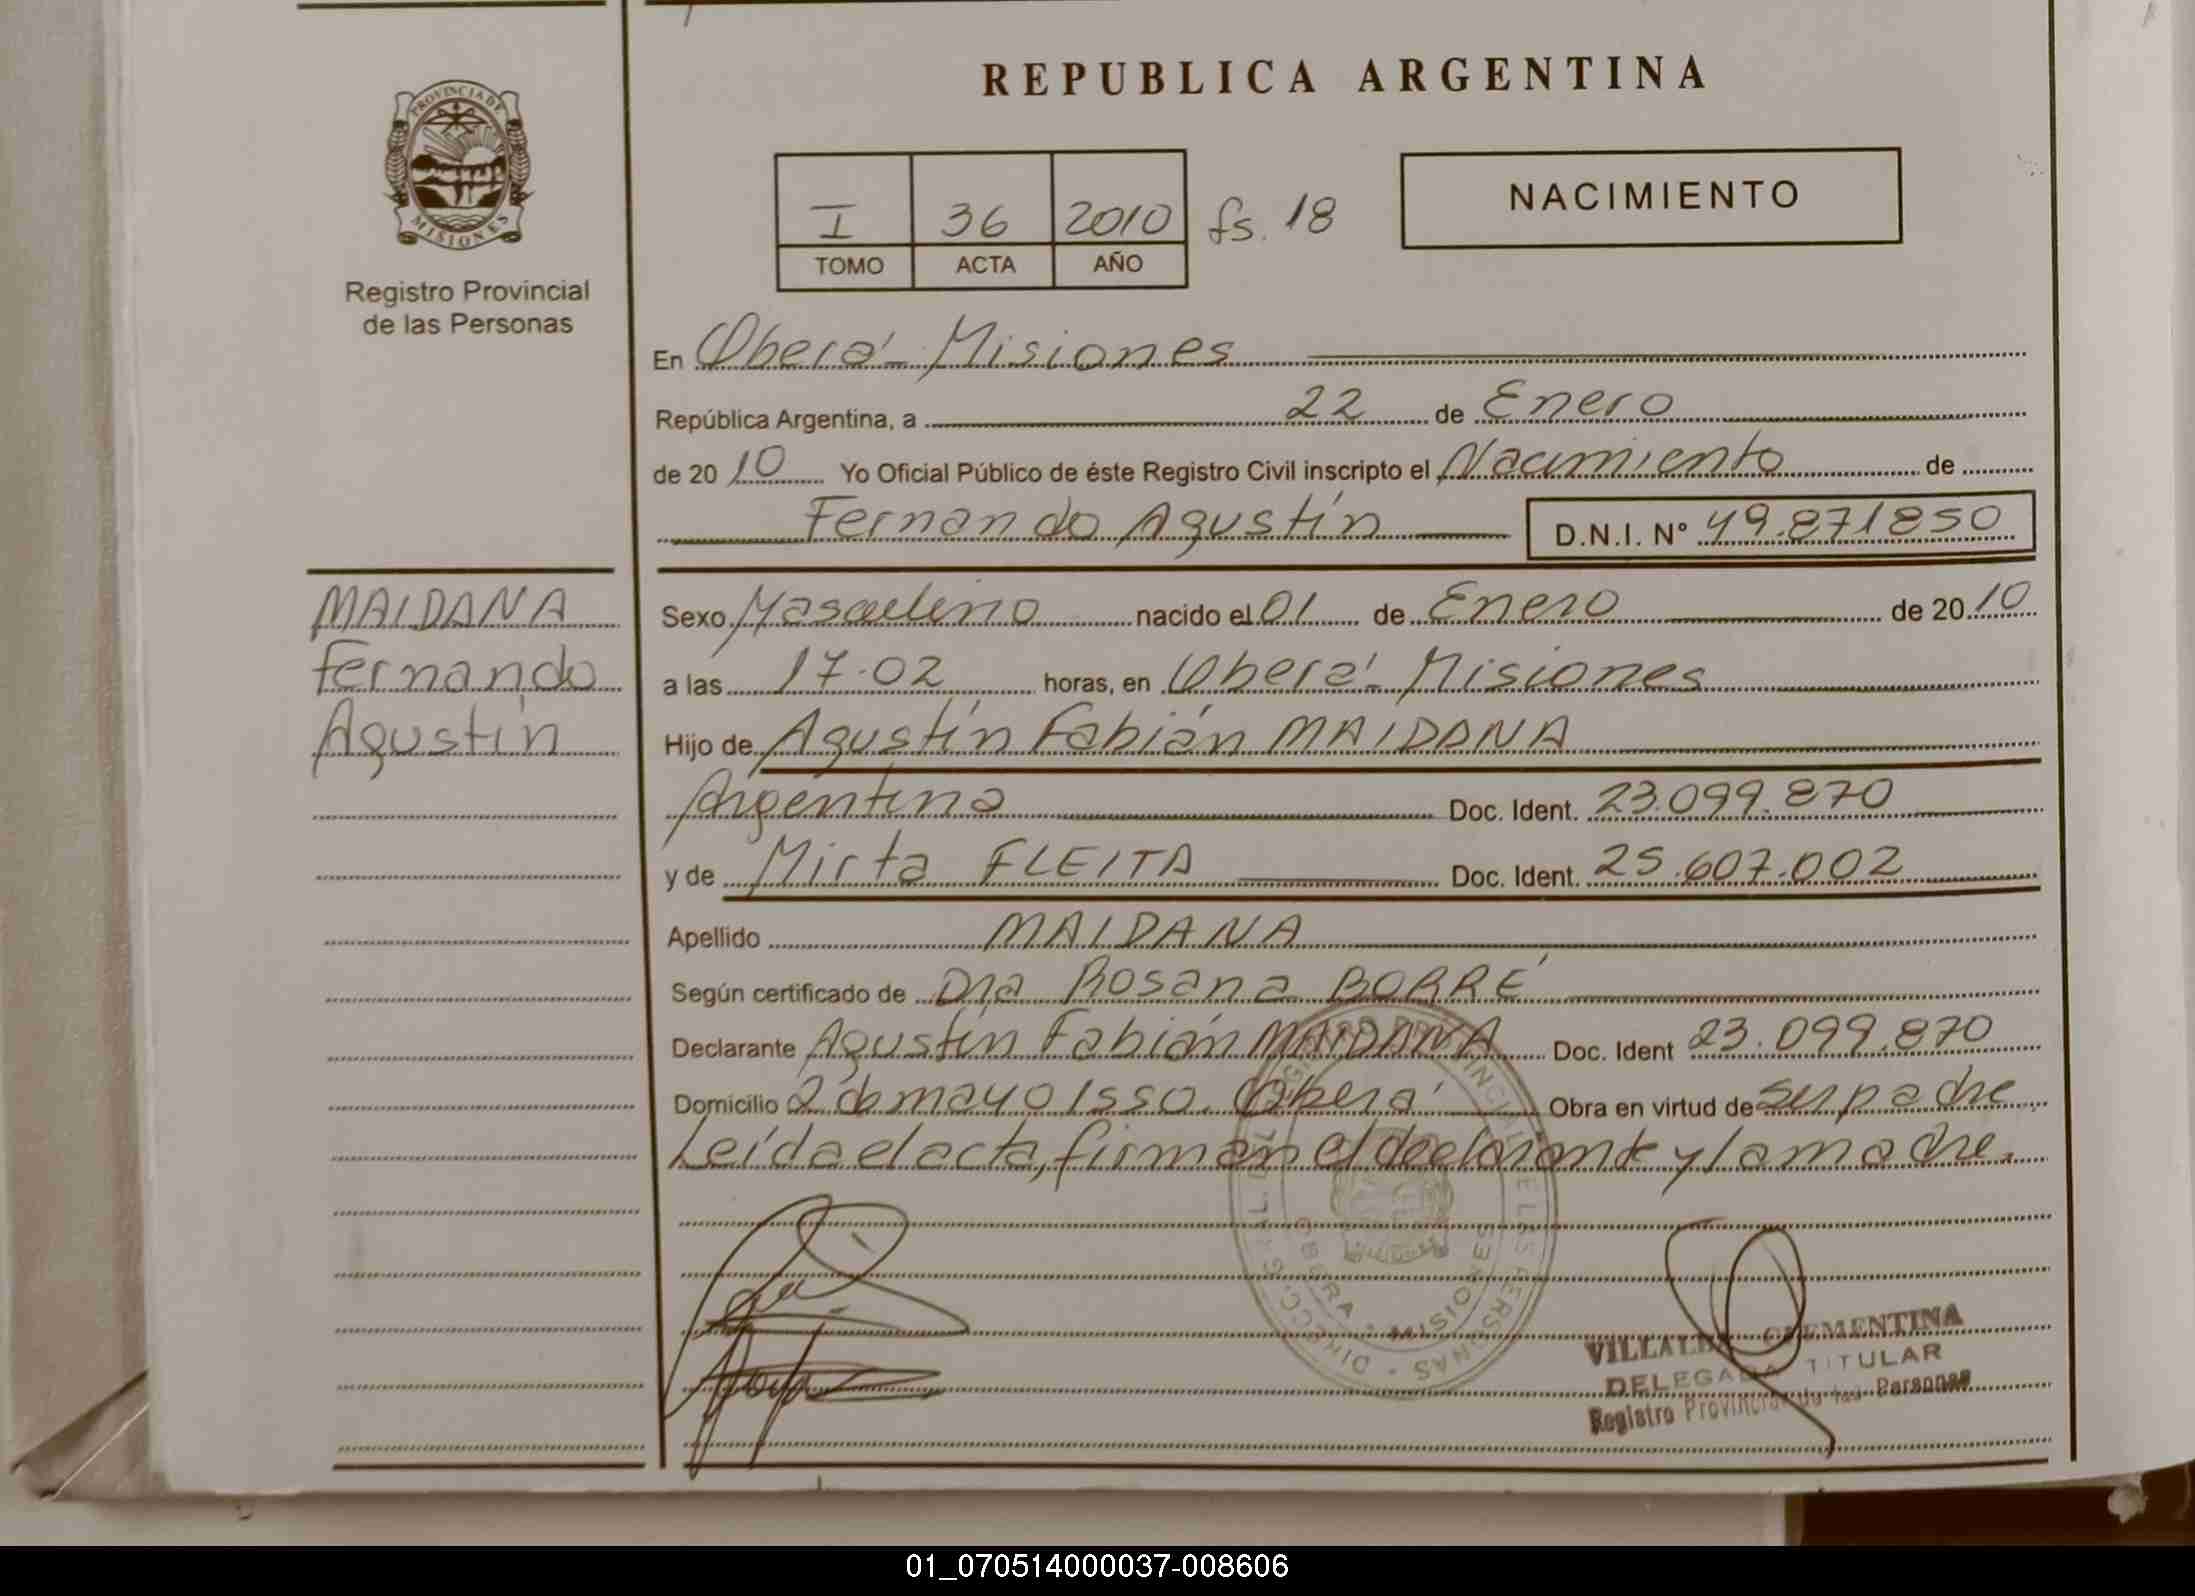 REPUBLICA ARGENTINA
PROVINCIA DE
MISIONES
Registro Provincial
de las Personas
I 36 2010 fs. 18
TOMO ACTA AÑO
NACIMIENTO
En Oberá - Misiones
República Argentina, a 22 de Enero
de 20 10 Yo Oficial Público de éste Registro Civil inscripto el Nacimiento de
Fernando Agustín D.N.I. Nº 49.871850
MAIDANA
Fernando
Agustín
Sexo Masculino nacido el 01 de Enero de 20 10
a las 17.02 horas, en Oberá - Misiones
Hijo de Agustín Fabián MAIDANA
Argentina Doc. Ident. 23.099.870
y de Mirta FLEITA Doc. Ident. 25.607.002
Apellido MAIDANA
Según certificado de Dra Rosana BORRÉ
Declarante Agustín Fabián MAIDANA Doc. Ident 23.099.870
Domicilio 2 de mayo 1550. Oberá Obra en virtud de su padre
Leída el acta, firman el declarante y la madre.
OBERA - MISIONES
VILLALBA CLEMENTINA
DELEGADA TITULAR
Registro Provincial de las Personas
01_070514000037-008606